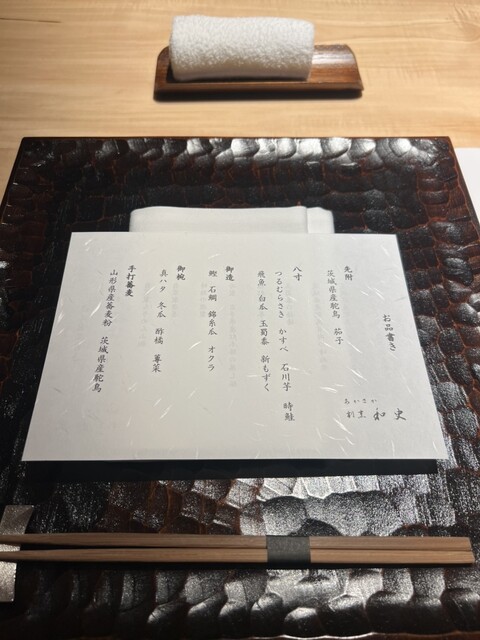 お品書き
先附
茨城県産鴕鳥 茄子
八寸
つるむらさき かすべ 石川芋 時鮭
飛魚 白瓜 玉蜀黍 新もずく
御造
鰹 石鯛 錦糸瓜 オクラ
御椀
真ハタ 冬瓜 酢橘 蓴菜
手打蕎麦
山形県産蕎麦粉 茨城県産鴕鳥
あかさか
和史